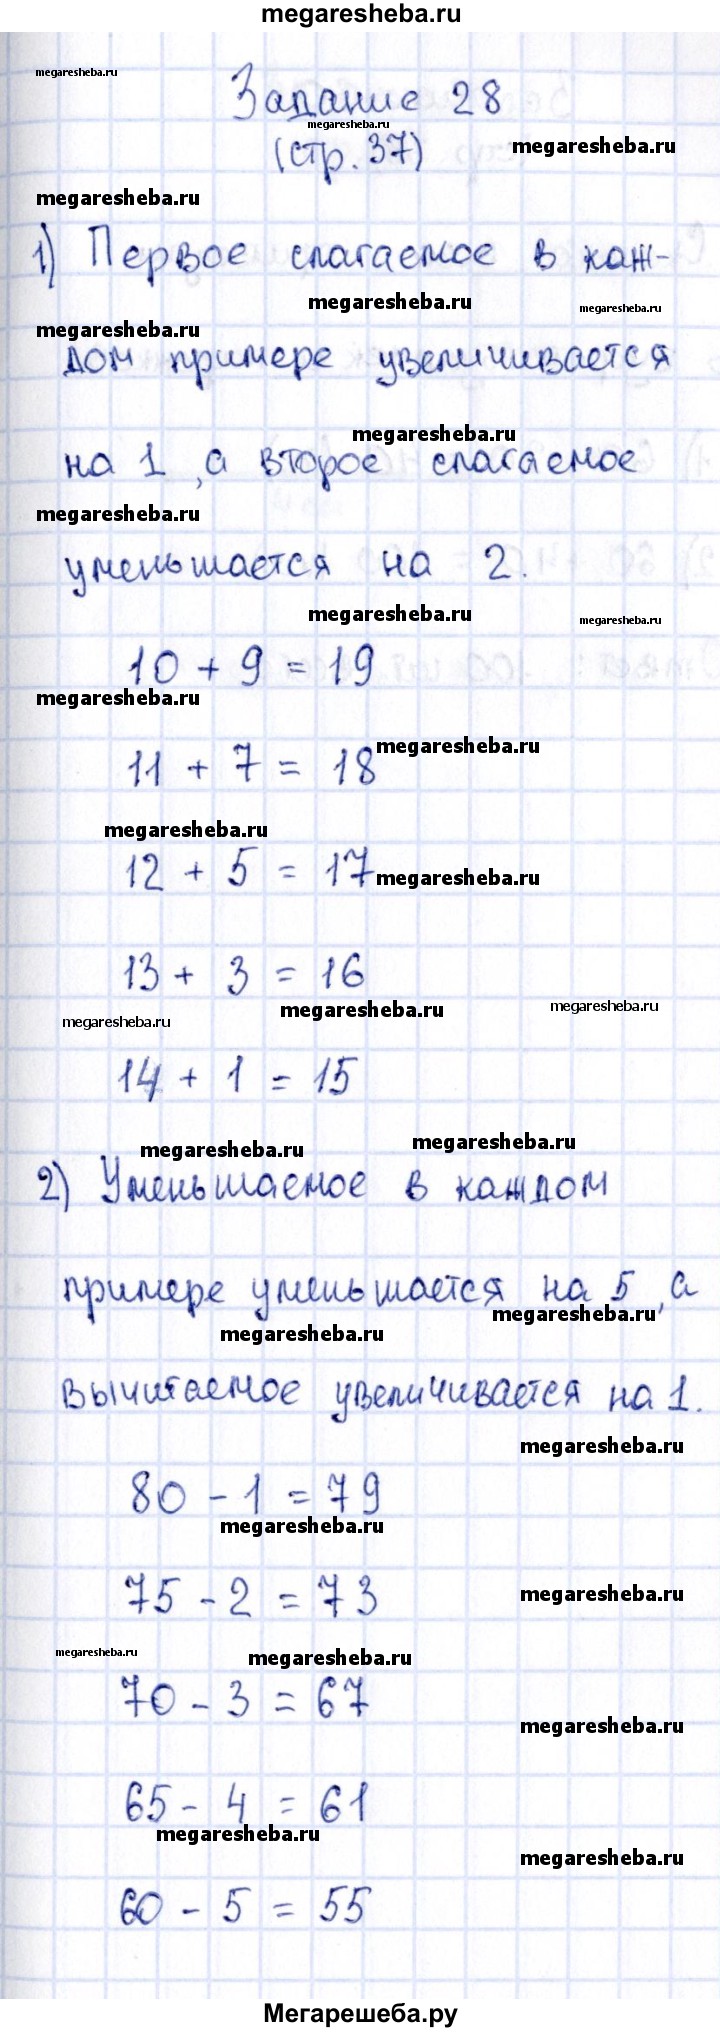 megaresheba.ru
megaresheba.ru
Задание 28
megaresheba.ru
(стр. 37)
megaresheba.ru
megaresheba.ru
1) Первое слагаемое в каж-
megaresheba.ru
megaresheba.ru
megaresheba.ru
дом примере увеличивается
megaresheba.ru
на 1, а второе слагаемое
megaresheba.ru
уменьшается на 2.
megaresheba.ru
megaresheba.ru
10 + 9 = 19
megaresheba.ru
megaresheba.ru
11 + 7 = 18
megaresheba.ru
12 + 5 = 17
megaresheba.ru
13 + 3 = 16
megaresheba.ru
megaresheba.ru
megaresheba.ru
14 + 1 = 15
megaresheba.ru
megaresheba.ru
2) Уменьшаемое в каждом
примере уменьшается на 5, а
megaresheba.ru
megaresheba.ru
вычитаемое увеличивается на 1.
megaresheba.ru
80 - 1 = 79
megaresheba.ru
75 - 2 = 73
megaresheba.ru
megaresheba.ru
megaresheba.ru
70 - 3 = 67
megaresheba.ru
65 - 4 = 61
megaresheba.ru
megaresheba.ru
60 - 5 = 55
Мегарешеба.ру